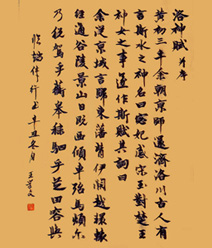 洛神賦 并序
黃初三年余朝京師還濟洛川古人有
言斯水之神名曰宓妃感宋玉對楚王
神女之事遂作斯賦其詞曰
余從京域言歸東藩背伊闕越轘轅
經通谷陵景山日既西傾車殆馬煩尔
乃稅駕乎蘅皋秣駟乎芝田容與
臨 行書 辛丑冬月 王 文